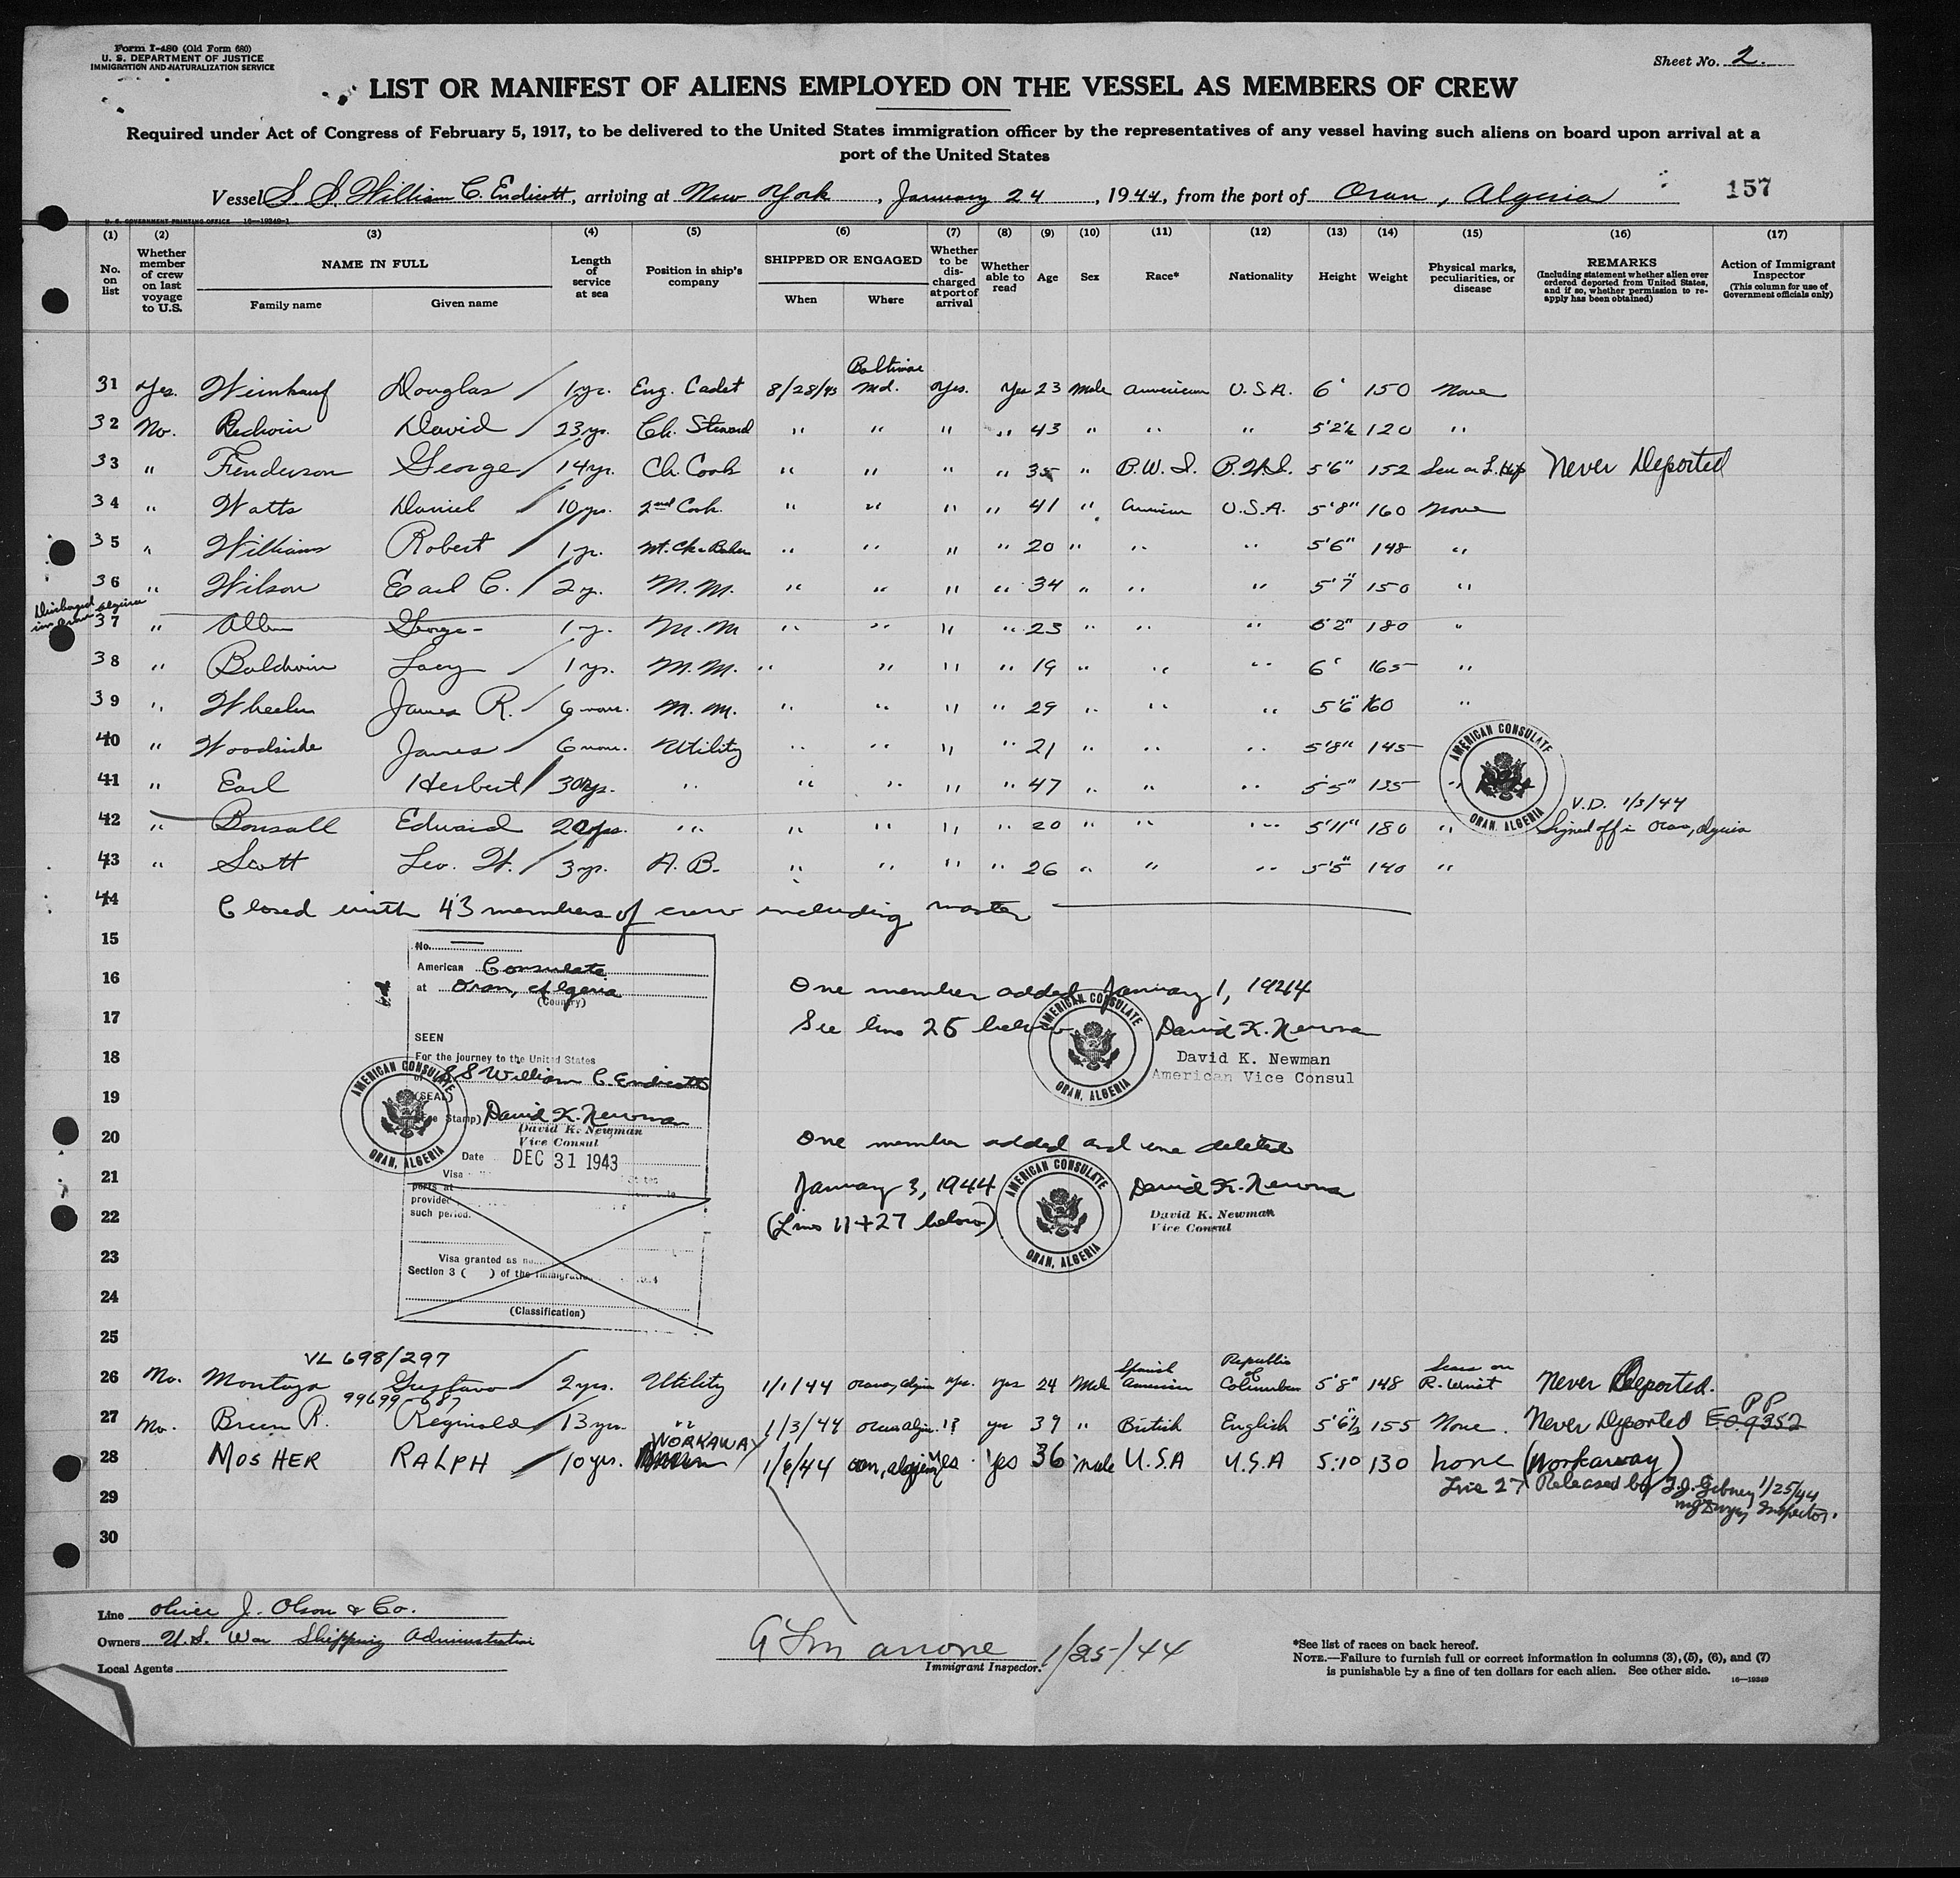 Form I-480 (Old Form 680)
U. S. DEPARTMENT OF JUSTICE
IMMIGRATION AND NATURALIZATION SERVICE
Sheet No. 2.
LIST OR MANIFEST OF ALIENS EMPLOYED ON THE VESSEL AS MEMBERS OF CREW
Required under Act of Congress of February 5, 1917, to be delivered to the United States immigration officer by the representatives of any vessel having such aliens on board upon arrival at a
port of the United States
Vessel S. S. William C. Endicott, arriving at New York, January 24, 1944, from the port of Oran, Algeria
157
U. S. GOVERNMENT PRINTING OFFICE 16-19249-1
(1) (2) (3) (4) (5) (6) (7) (8) (9) (10) (11) (12) (13) (14) (15) (16) (17)
No. on list
Whether member of crew on last voyage to U.S.
NAME IN FULL
Family name Given name
Length of service at sea
Position in ship's company
SHIPPED OR ENGAGED
When Where
Whether to be discharged at port of arrival
Whether able to read
Age
Sex
Race*
Nationality
Height
Weight
Physical marks, peculiarities, or disease
REMARKS
(Including statement whether alien ever ordered deported from United States, and if so, whether permission to reapply has been obtained)
Action of Immigrant Inspector
(This column for use of Government officials only)
Baltimore
31 Yes. Weinkauf Douglas / 1 yr. Eng. Cadet 8/28/43 Md. Yes. Yes 23 Male American U.S.A. 6' 150 None
32 No. Bedwin David / 23 yrs. Ch. Steward " " " " 43 " " " 5'2½ 120 "
33 " Fenderson George / 14 yr. Ch. Cook " " " " 35 " B.W.I. B.W.I. 5'6" 152 Scar on L. Hip Never Deported
34 " Watts Daniel / 10 yrs. 2nd Cook " " " " 41 " American U.S.A. 5'8" 160 None
35 " Williams Robert / 1 yr. Nt. Ck & Baker " " " " 20 " " " 5'6" 148 "
36 " Wilson Earl C. / 2 y. M.M. " " " " 34 " " " 5'7" 150 "
Discharged in Oran Algeria
37 " Allen George - 1 y. M.M " " " " 23 " " " 6'2" 180 "
38 " Baldwin Lacy / 1 yr. M.M. " " " " 19 " " " 6' 165 "
39 " Wheeler James R. / 6 mos. M.M. " " " " 29 " " " 5'6" 160 "
40 " Woodside James / 6 mos. Utility " " " " 21 " " " 5'8" 145
41 " Earl Herbert / 30 yrs. " " " " " 47 " " " 5'5" 135 "
42 " Bonsall Edward 20 yrs. " " " " " 20 " " " 5'11" 180 "
V.D. 1/3/44
Signed off in Oran, Algeria
43 " Scott Leo. W. / 3 yr. A.B. " " " " 26 " " " 5'5" 140 "
AMERICAN CONSULATE
ORAN, ALGERIA
44 Closed with 43 members of crew including master
15
16
17
18
19
20
21
22
23
24
25
No.
American Consulate
at Oran, Algeria
(Country)
SEEN
For the journey to the United States
of S S William C. Endicott
(SEAL)
(Fee Stamp) David K. Newman
David K. Newman
Vice Consul
Date DEC 31 1943
Visa
ports at
provided
such period.
Visa granted as
Section 3 ( ) of the Immigration
(Classification)
AMERICAN CONSULATE
ORAN, ALGERIA
One member added January 1, 1944
See line 26 below
David K. Newman
David K. Newman
American Vice Consul
AMERICAN CONSULATE
ORAN, ALGERIA
One member added and one deleted
January 3, 1944
(Lines 11 + 27 below)
David K. Newman
David K. Newman
Vice Consul
AMERICAN CONSULATE
ORAN, ALGERIA
VL 698/297
26 No. Montoya Gustavo / 2 yrs. Utility 1/1/44 Oran, Algeria Yes. yes 24 Male Spanish American Republic of Columbia 5'8" 148 Scar on R. Wrist Never Deported.
99699-687 PP
27 No. Breen R. Reginald / 13 yrs. " 1/3/44 Oran Algeria yes 39 " British English 5'6½ 155 None. Never Deported E.O. 9352
28 MOSHER RALPH / 10 yrs. WORKAWAY 1/6/44 Oran, Algeria Yes Yes 36 male U.S.A U.S.A 5:10 130 none (Workaway)
29 Line 27 Released by J.J. Gibney 1/25/44
Inspector.
30
Line Oliver J. Olson & Co.
Owners U.S. War Shipping Administration
Local Agents
1/25/44
Immigrant Inspector.
*See list of races on back hereof.
NOTE.—Failure to furnish full or correct information in columns (3), (5), (6), and (7)
is punishable by a fine of ten dollars for each alien. See other side.
16-19249